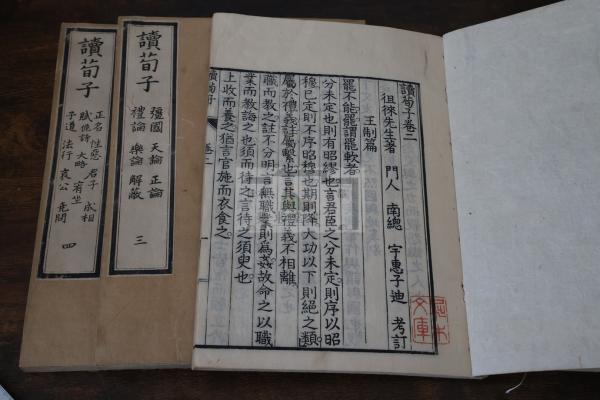 讀荀子卷二
徂徠先生著 門人 南總 宇惠子迪 考訂
王制篇
罷不能罷謂罷軟者
分未定也則有昭繆也言君臣之分未定則序以昭
穆已定則不序昭穆也期則降大功以下則絕之類
屬於禮義註屬繫也言其與禮義不相離
職而教之註不分明言無職業則爲姦故命之以職
業而教誨之也須而待之言待之須臾也
上收而養之猶言官施而衣食之
讀荀子 卷二 一
讀荀子
彊國 天論 正論
禮論 樂論 解蔽
三
讀荀子
正名 性惡 君子 成相
賦佹詩 大略 宥坐
子道 法行 哀公 堯問
四
文庫